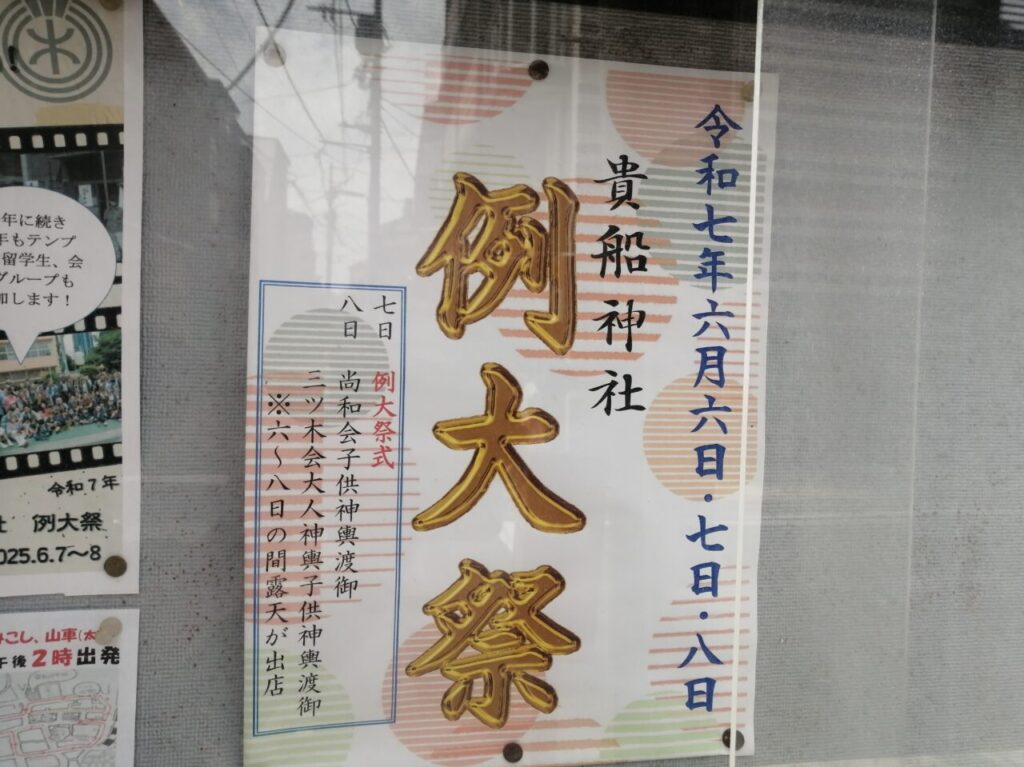 令和七年六月六日・七日・八日
貴船神社
例大祭
七日 例大祭式
八日 尚和会子供神輿渡御
三ツ木会大人神輿子供神輿渡御
※六~八日の間露天が出店
年に続き
年もテンプ
留学生、会
グループも
加します!
令和7年
社 例大祭
025.6.7~8
みこし、山車(太
午後2時出発